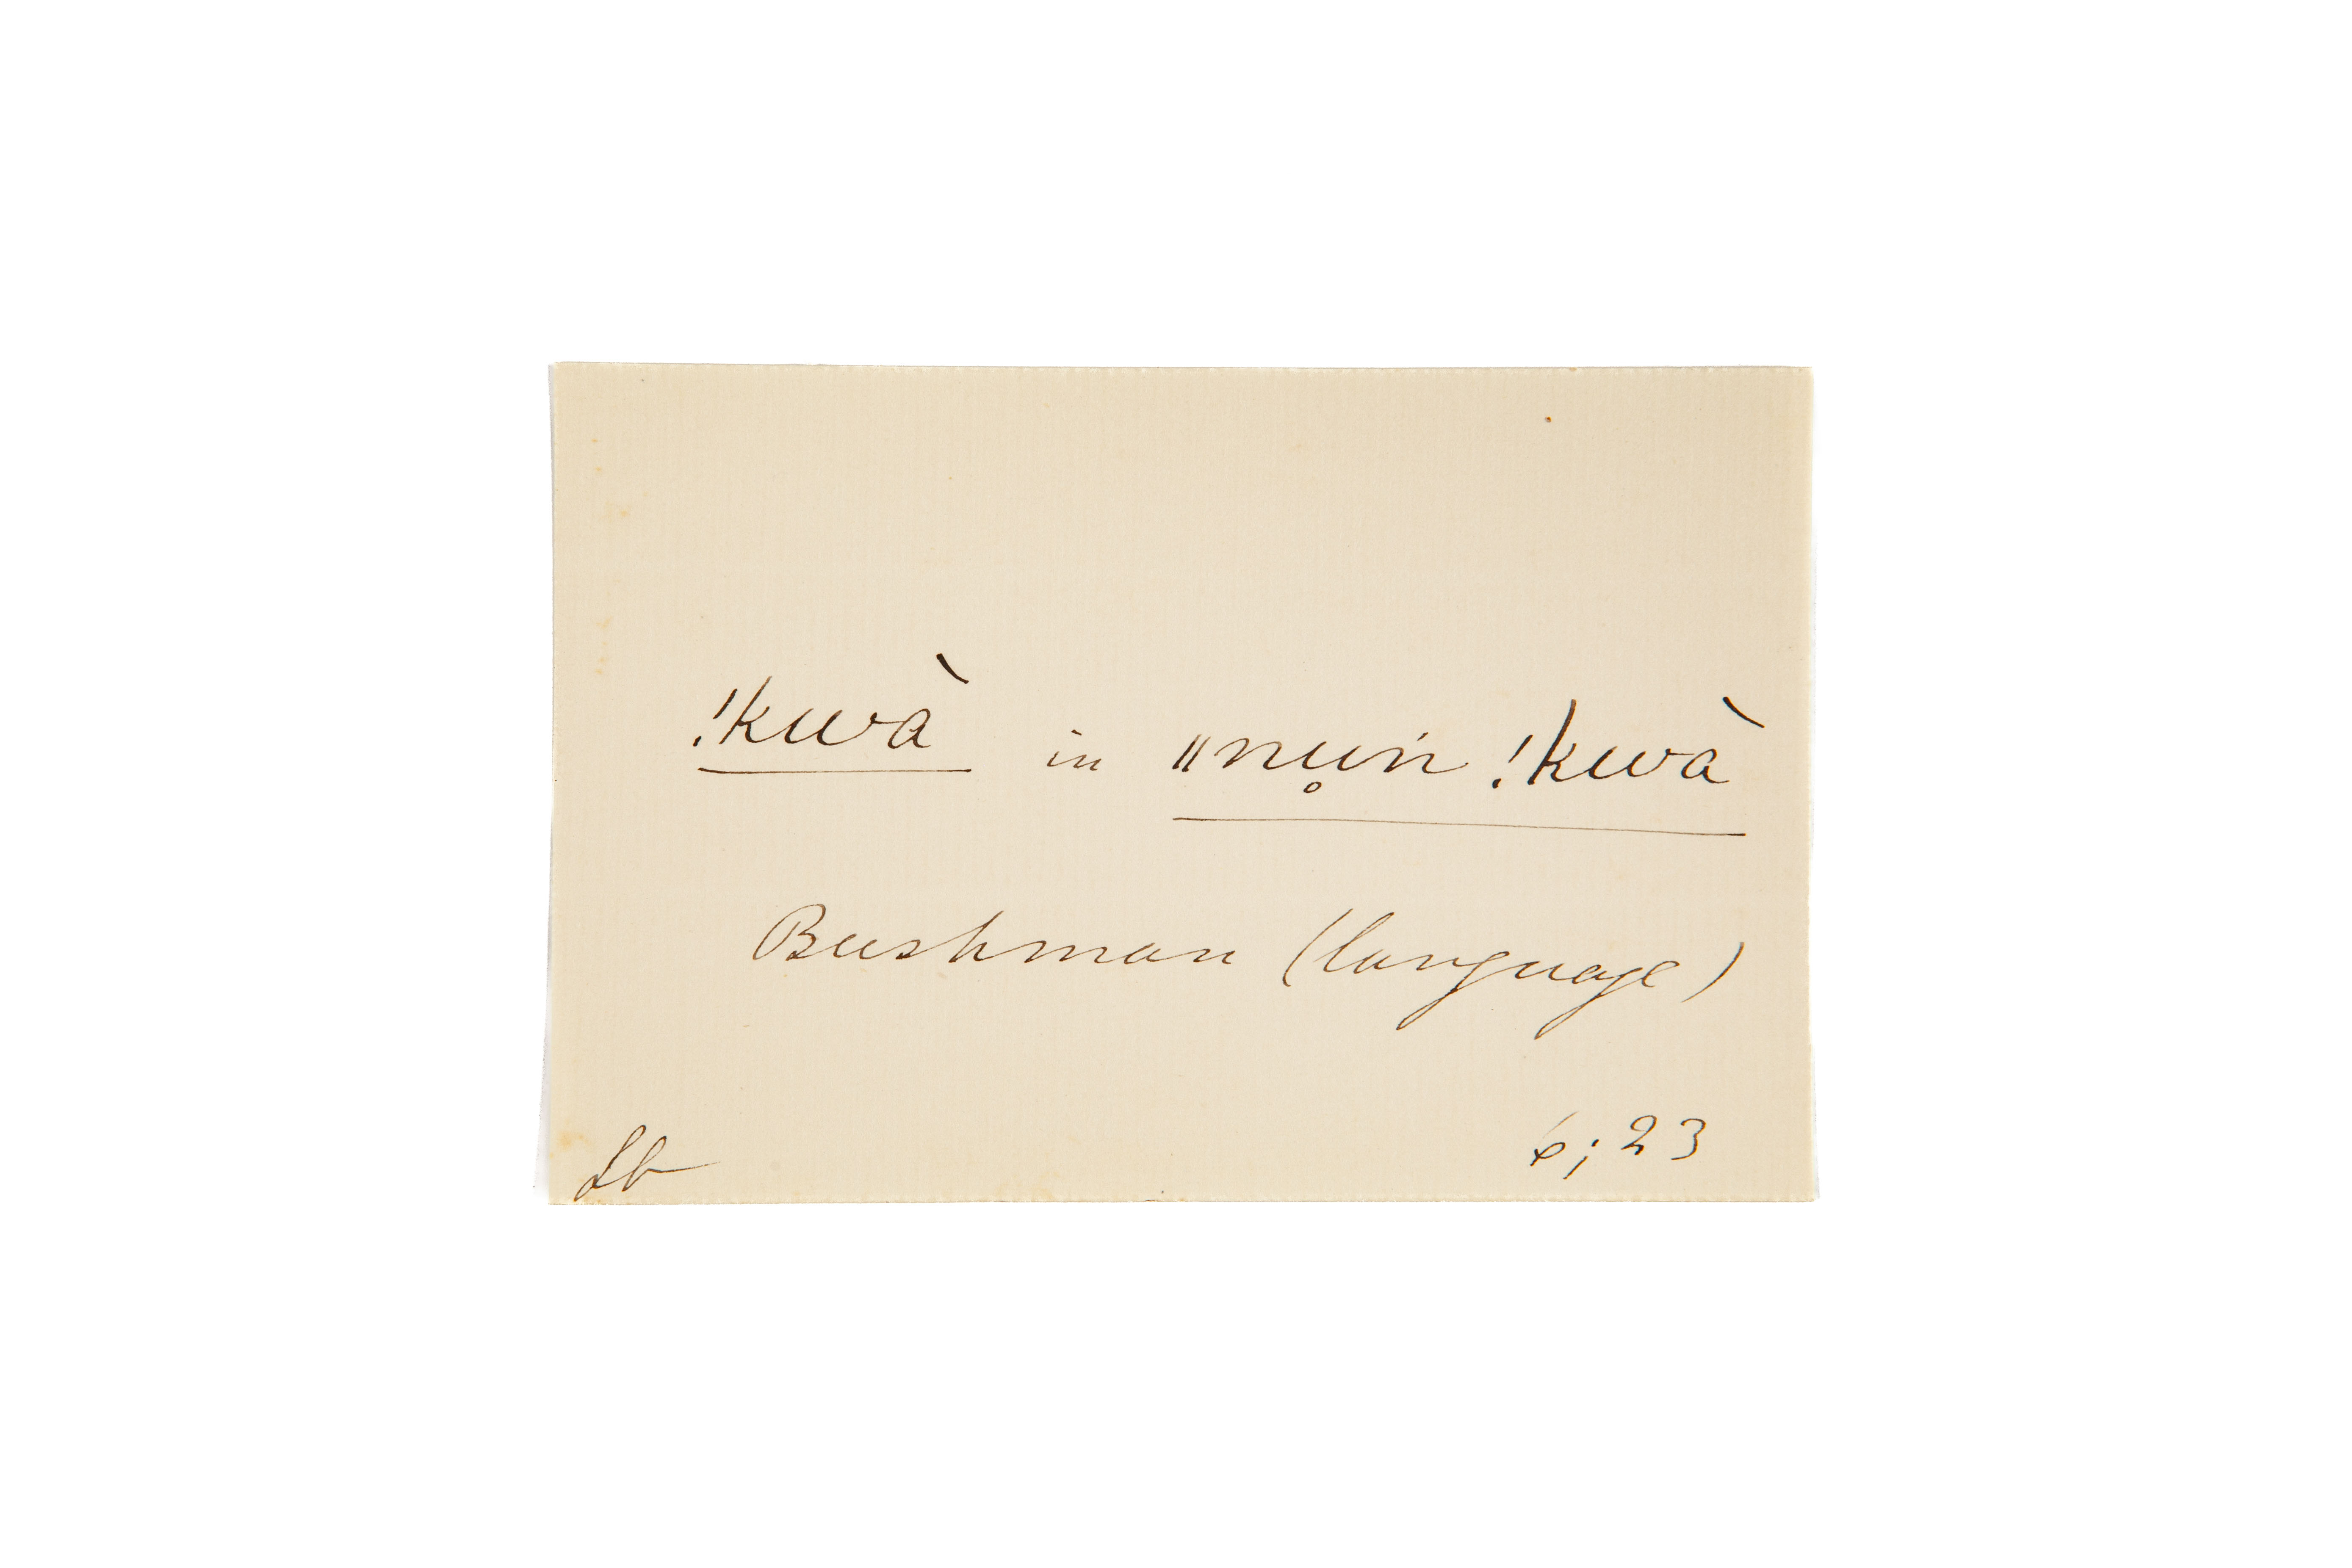 !kwà in ǁnu̥ṅ !kwà
Bushman (language)
Lb 6; 23